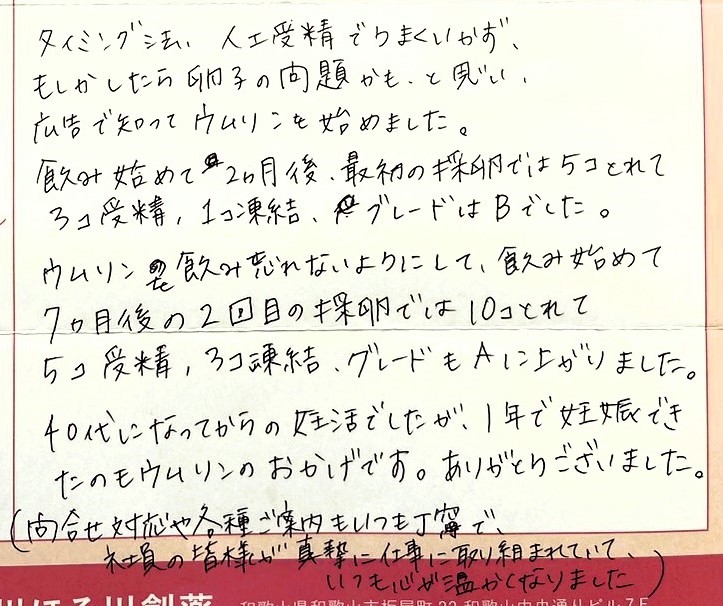 タイミング法、人工受精でうまくいかず、
もしかしたら卵子の問題かも、と思い、
広告で知ってウムリンを始めました。
飲み始めて2ヵ月後、最初の採卵では5コとれて
3コ受精、1コ凍結、グレードはBでした。
ウムリンを飲み忘れないようにして、飲み始めて
7ヵ月後の2回目の採卵では10コとれて
5コ受精、3コ凍結、グレードもAに上がりました。
40代になってからの妊活でしたが、1年で妊娠でき
たのもウムリンのおかげです。ありがとうございました。
(問合せ対応や各種ご案内もいつも丁寧で、
社員の皆様が真摯に仕事に取り組まれていて、
いつも心が温かくなりました)
創薬 和歌山県和歌山市板屋町22 和歌山中央通りビル7F